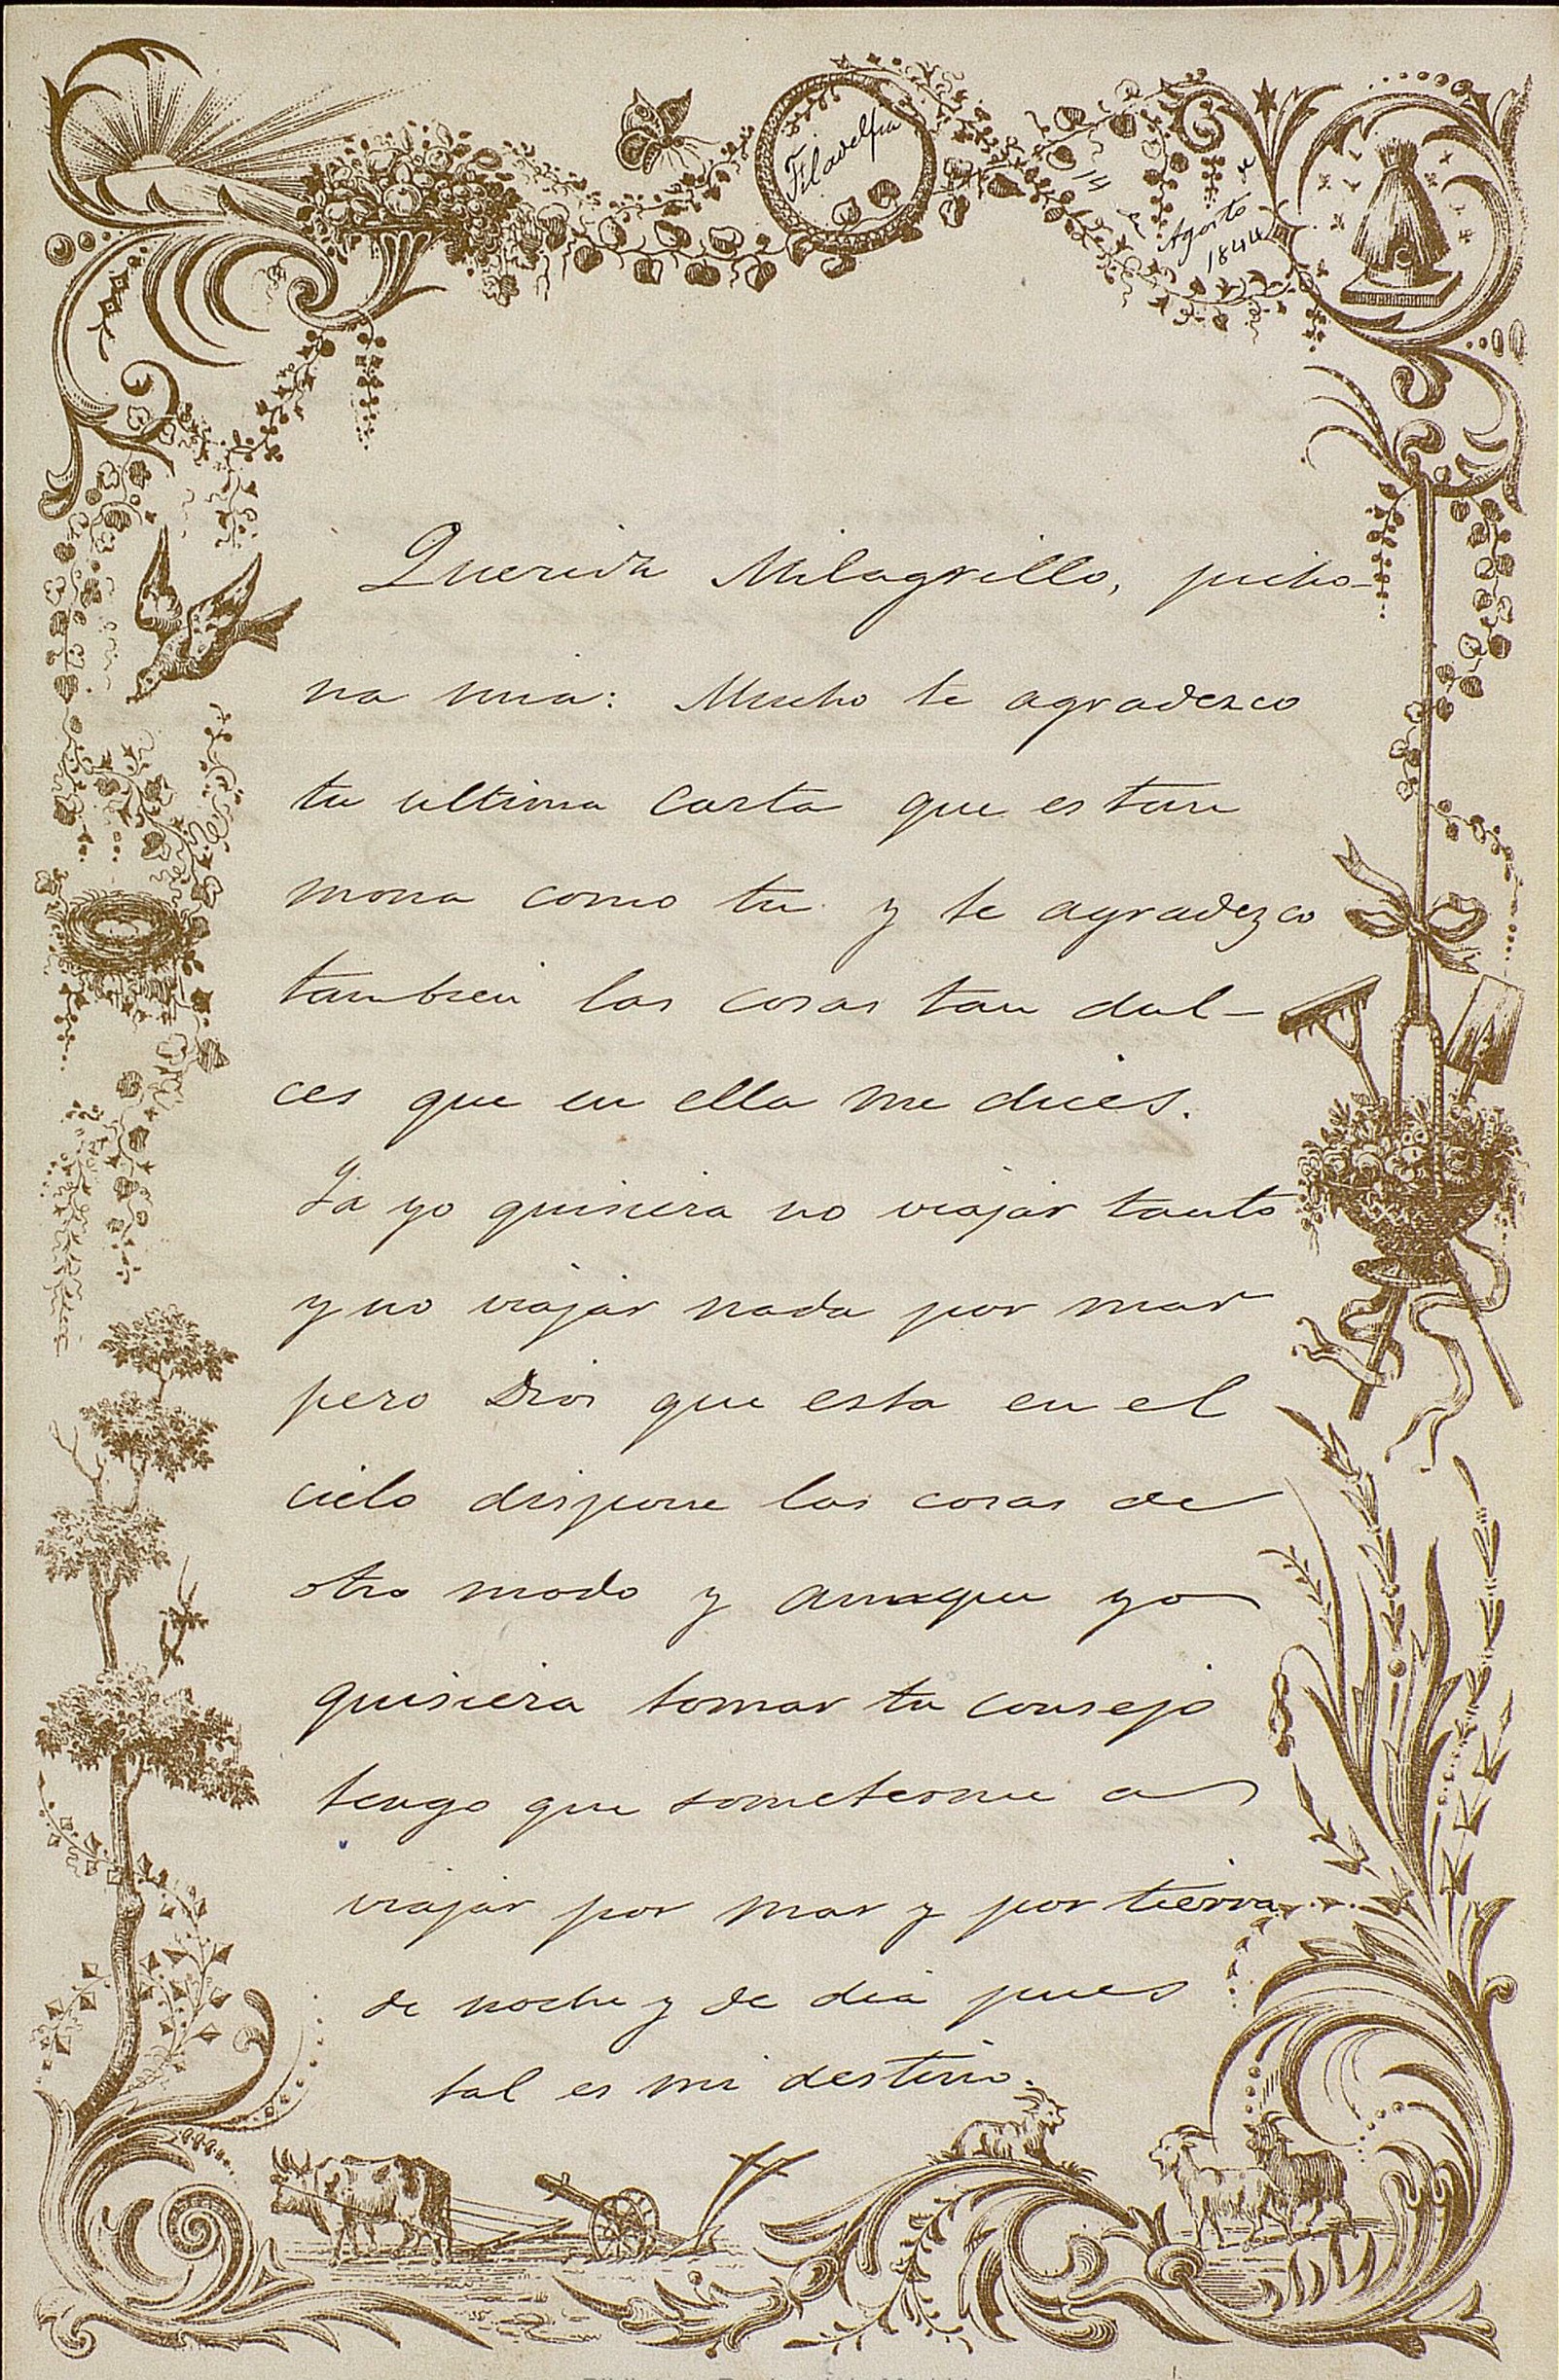 Filadelfia
14
de
Agosto de
1844
Querida Milagrillo, picho-
na mia: Mucho te agradezco
tu ultima carta que es tan
mona como tu y te agradezco
tambien las cosas tan dul-
ces que en ella me dices.
Ya yo quisiera no viajar tanto
y no viajar nada por mar
pero Dios que esta en el
cielo dispone las cosas de
otro modo y aunque yo
quisiera tomar tu consejo
tengo que someterme a
viajar por mar y por tierra
de noche y de dia pues
tal es mi destino.